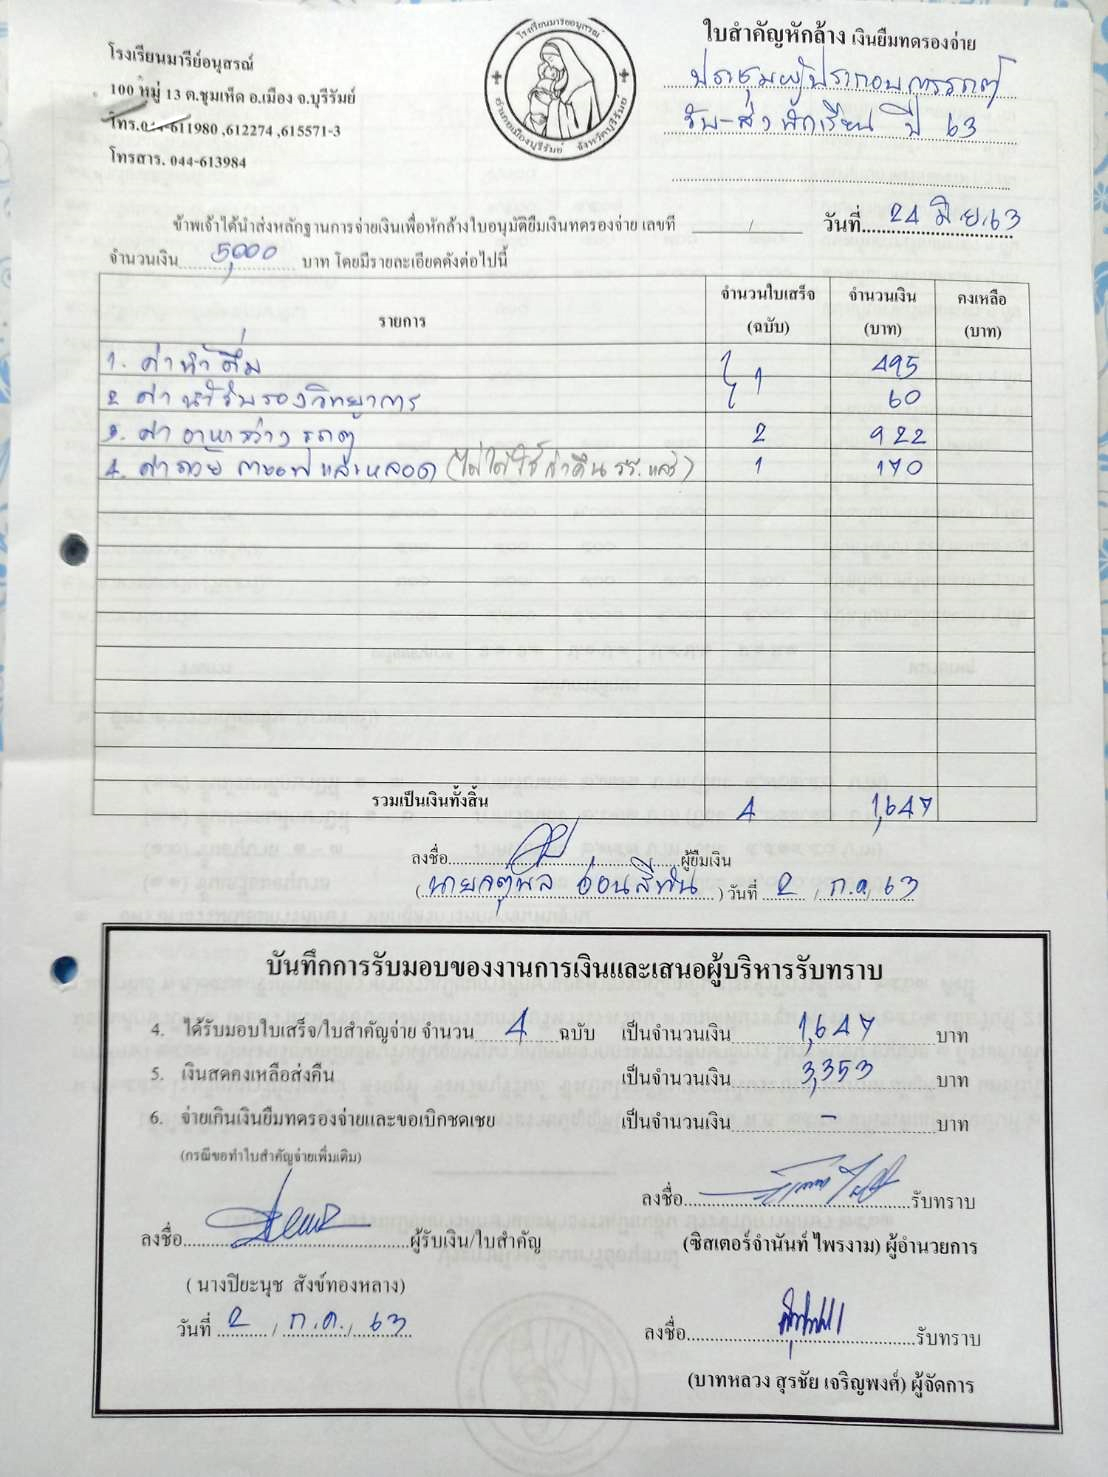 โรงเรียนมารีย์อนุสรณ์
100 หมู่ 13 ต.ชุมเห็ด อ.เมือง จ.บุรีรัมย์
โทร.044-611980 ,612274 ,615571-3
โทรสาร. 044-613984
โรงเรียนมารีย์อนุสรณ์
อำเภอเมืองบุรีรัมย์ จังหวัดบุรีรัมย์
ใบสำคัญหักล้าง เงินยืมทดรองจ่าย
ประชุมผู้ประกอบการรถตู้
รับ-ส่ง นักเรียน ปี 63
ข้าพเจ้าได้นำส่งหลักฐานการจ่ายเงินเพื่อหักล้างใบอนุมัติยืมเงินทดรองจ่าย เลขที่ / วันที่ 24 มิ.ย.63
จำนวนเงิน 5,000 บาท โดยมีรายละเอียดดังต่อไปนี้
รายการ จำนวนใบเสร็จ (ฉบับ) จำนวนเงิน (บาท) คงเหลือ (บาท)
1. ค่าน้ำดื่ม 495
2 ค่าน้ำรับรองวิทยาการ 1 60
3. ค่าอาหารว่าง รถตู้ 2 922
4. ค่าถ้วย กาแฟและหลอด (ไม่ได้ใช้ คืน รร. แล้ว) 1 170
รวมเป็นเงินทั้งสิ้น 4 1,647
ลงชื่อ ผู้ยืมเงิน
(นายจตุพล อ่อนสีทัน) วันที่ 2 / ก.ค./ 63
บันทึกการรับมอบของงานการเงินและเสนอผู้บริหารรับทราบ
4. ได้รับมอบใบเสร็จ/ใบสำคัญจ่าย จำนวน 4 ฉบับ เป็นจำนวนเงิน 1,647 บาท
5. เงินสดคงเหลือส่งคืน เป็นจำนวนเงิน 3,353 บาท
6. จ่ายเกินเงินยืมทดรองจ่ายและขอเบิกชดเชย เป็นจำนวนเงิน - บาท
(กรณีขอทำใบสำคัญจ่ายเพิ่มเติม)
ลงชื่อ รับทราบ
ลงชื่อ ผู้รับเงิน/ใบสำคัญ
(ซิสเตอร์จำนันท์ ไพรงาม) ผู้อำนวยการ
( นางปิยะนุช สังข์ทองหลาง)
วันที่ 2 / ก.ค./ 63
ลงชื่อ รับทราบ
(บาทหลวง สุรชัย เจริญพงศ์) ผู้จัดการ